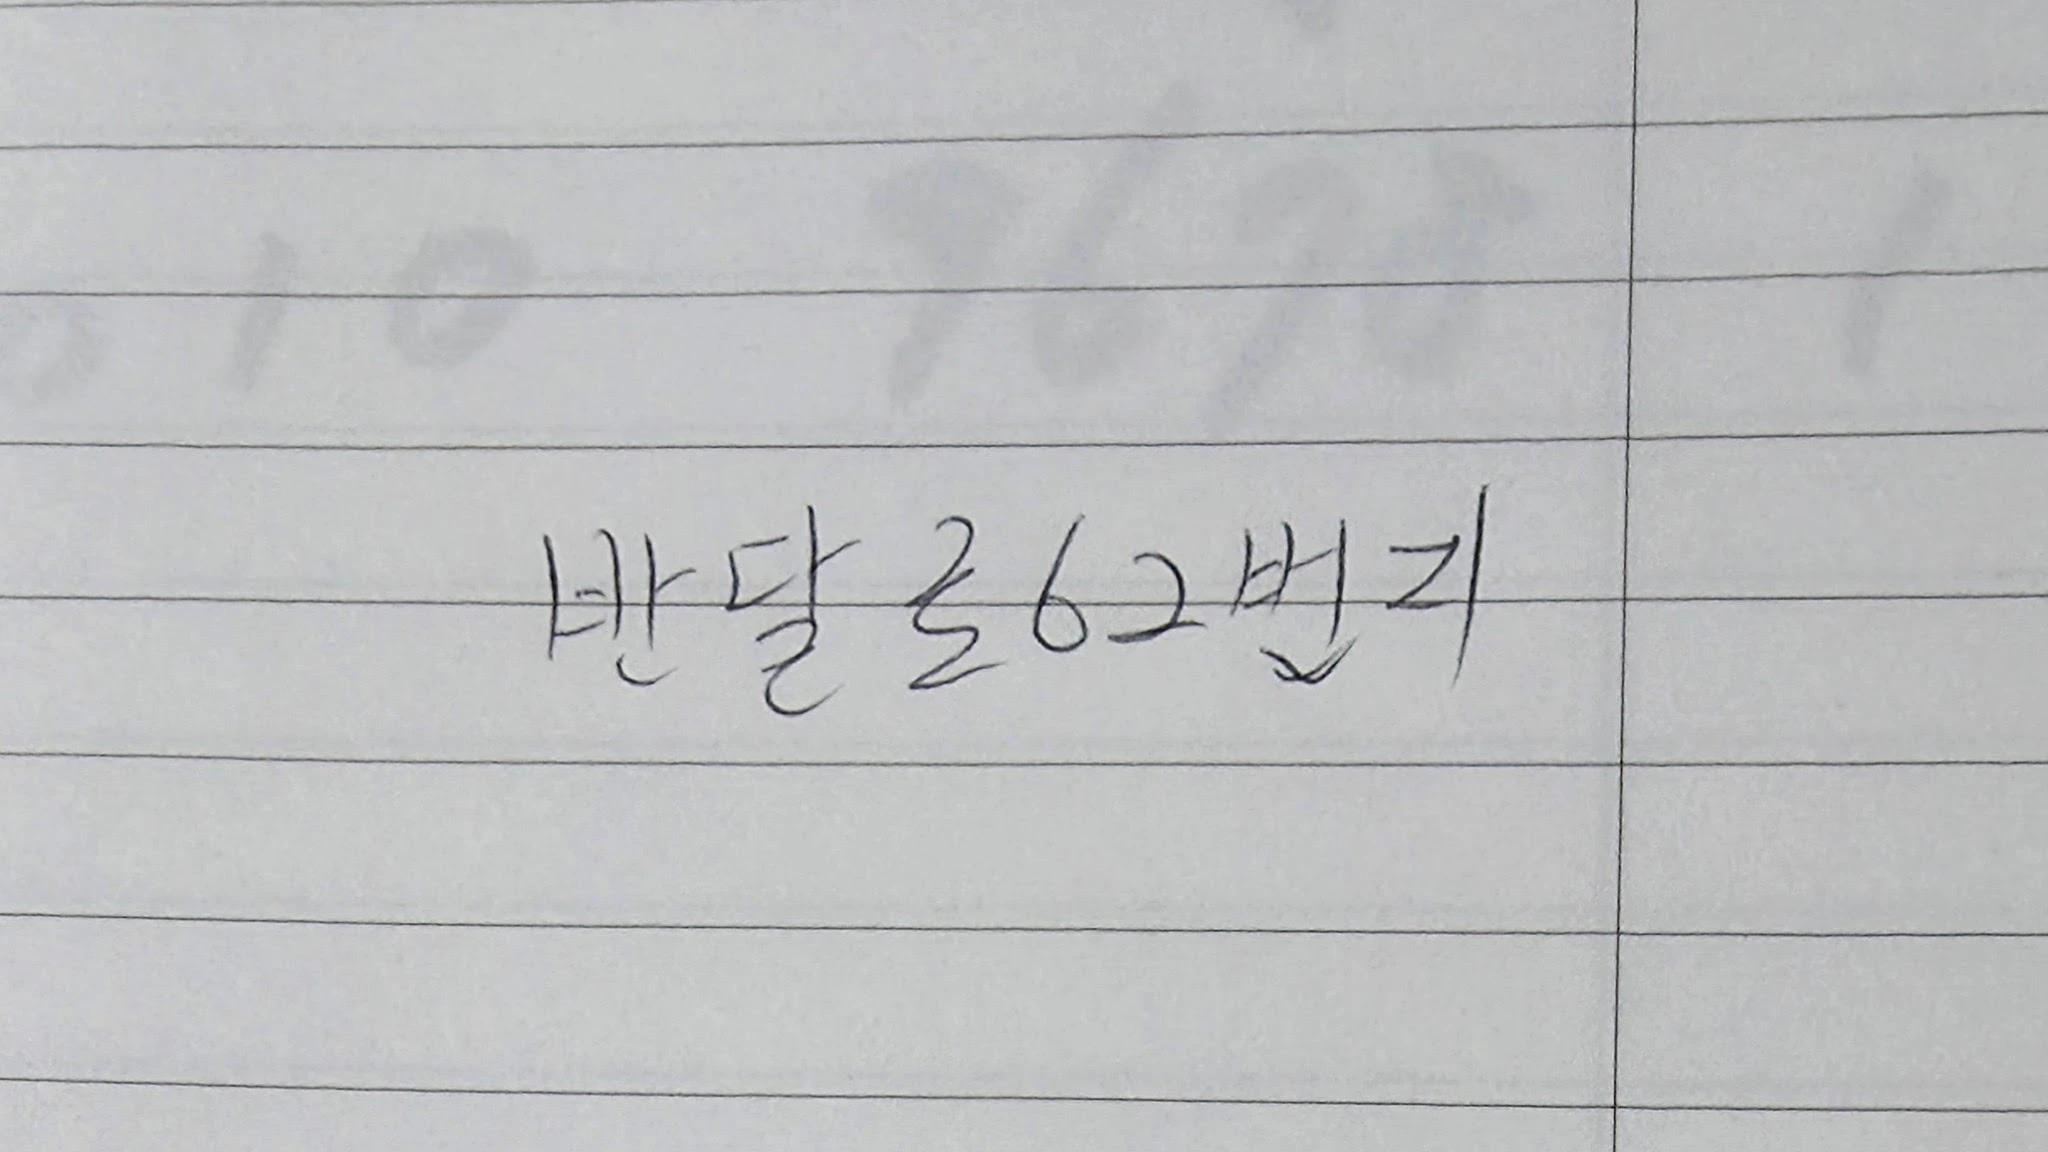 반달로62번지